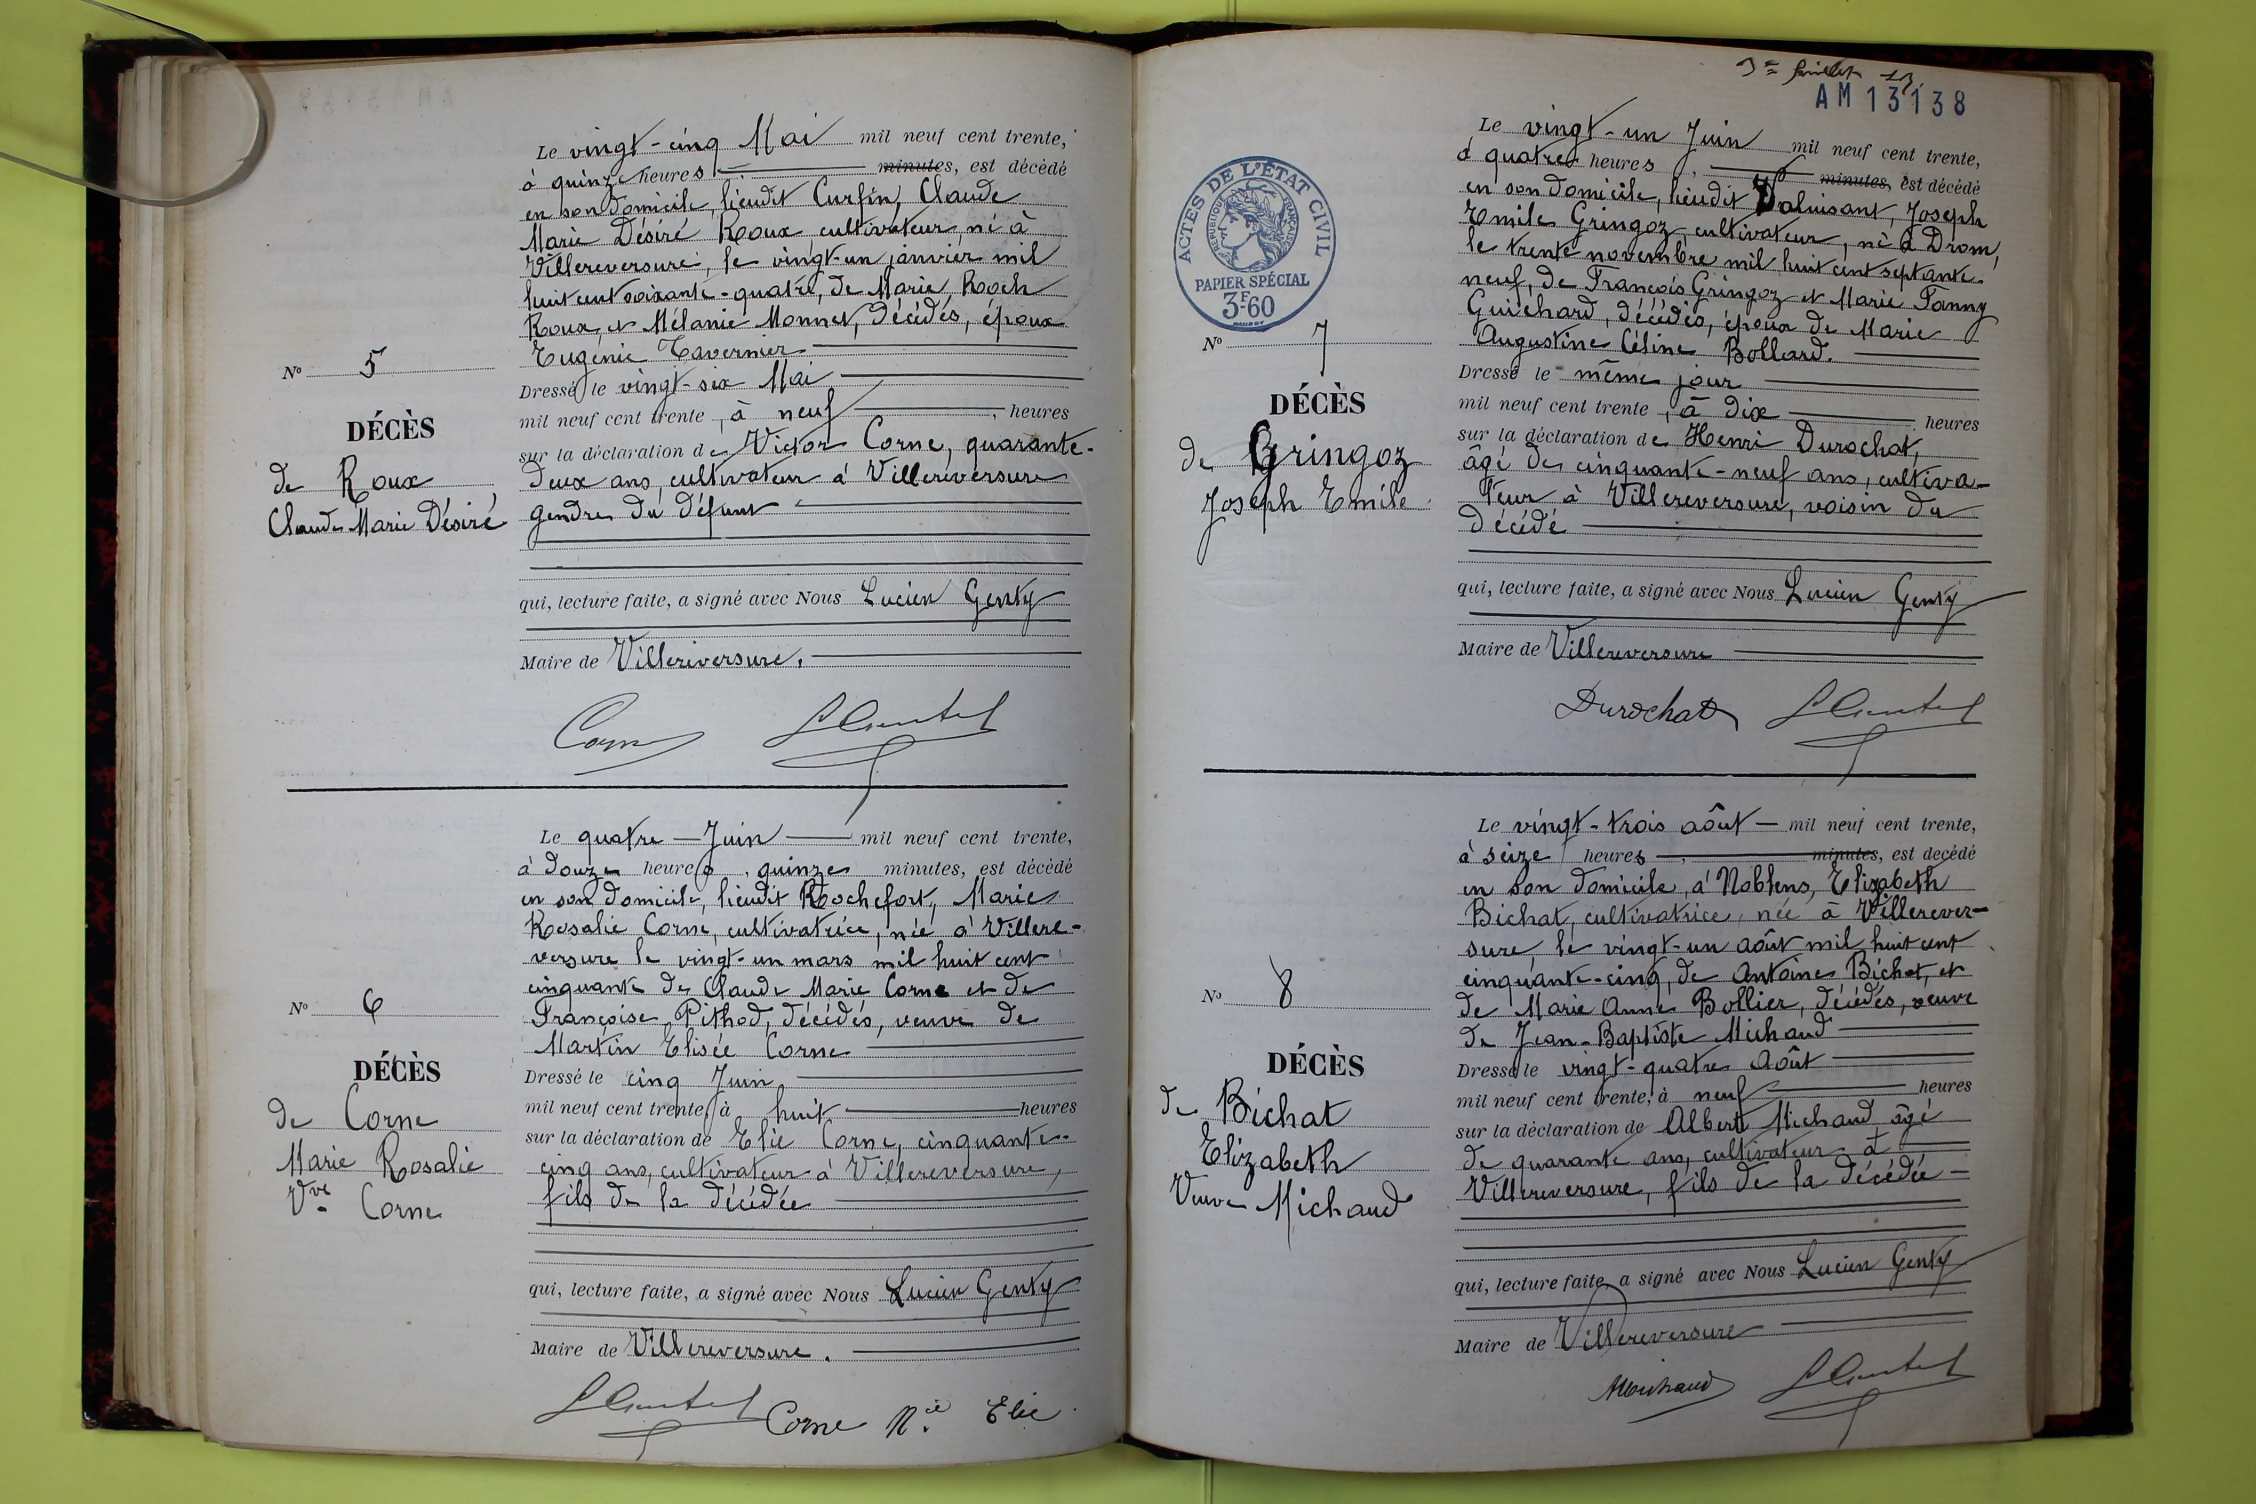 Le vingt-cinq Mai mil neuf cent trente,
à quinze heures minutes, est décédé
en son domicile, lieudit Curfin, Claude
Marie Désiré Roux cultivateur, né à
Villereversure, le vingt-un janvier mil
huit cent soixante-quatre, de Marie Roch
Roux et Mélanie Monnet, décédés, époux
Eugénie Tavernier
Dressé le vingt-six Mai
mil neuf cent trente, à neuf heures
sur la déclaration de Victor Corne, quarante-
deux ans, cultivateur à Villereversure
gendre du défunt
qui, lecture faite, a signé avec Nous Lucien Genty
Maire de Villereversure.
No 5
DÉCÈS
de Roux
Claude Marie Désiré
Corne
Le quatre Juin mil neuf cent trente,
à douze heures, quinze minutes, est décédé
en son domicile, lieudit Rochefort, Marie
Rosalie Corne, cultivatrice, née à Villere-
versure le vingt-un mars mil huit cent
cinquante de Claude Marie Corne et de
Françoise Pithod, décédés, veuve de
Martin Elisée Corne
Dressé le cinq Juin
mil neuf cent trente, à huit heures
sur la déclaration de Elie Corne, cinquante-
cinq ans, cultivateur à Villereversure,
fils de la décédée
qui, lecture faite, a signé avec Nous Lucien Genty
Maire de Villereversure.
No 6
DÉCÈS
de Corne
Marie Rosalie
Vve Corne
Corne Elie
AM 13138
ACTES DE L'ÉTAT CIVIL
RÉPUBLIQUE FRANÇAISE
PAPIER SPÉCIAL
3F60
Le vingt-un Juin mil neuf cent trente,
à quatre heures, minutes, est décédé
en son domicile, lieudit Valuisant, Joseph
Emile Gringoz, cultivateur, né à Drom,
le trente novembre mil huit cent septante-
neuf, de François Gringoz et Marie Fanny
Guichard, décédés, époux de Marie
Augustine Céline Bollard.
Dressé le même jour
mil neuf cent trente, à dix heures
sur la déclaration de Henri Durochat,
âgé de cinquante-neuf ans, cultiva-
teur à Villereversure, voisin du
décédé
qui, lecture faite, a signé avec Nous Lucien Genty
Maire de Villereversure
No 7
DÉCÈS
de Gringoz
Joseph Emile
Durochat
Le vingt-trois août mil neuf cent trente,
à seize heures, minutes, est decédé
en son domicile, à Noblens, Elizabeth
Bichat, cultivatrice, née à Villerever-
sure, le vingt-un août mil huit cent
cinquante-cinq, de Antoine Bichat, et
de Marie Anne Bollier, décédés, veuve
de Jean-Baptiste Michaud
Dressé le vingt-quatre Août
mil neuf cent trente, à neuf heures
sur la déclaration de Albert Michaud âgé
de quarante ans, cultivateur à
Villereversure, fils de la décédée
qui, lecture faite, a signé avec Nous Lucien Genty
Maire de Villereversure
No 8
DÉCÈS
de Bichat
Elizabeth
Veuve Michaud
Michaud